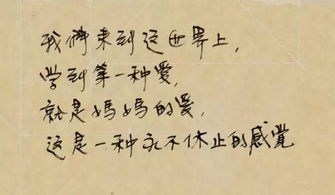 我们来到这世界上，
学到第一种爱，
就是妈妈的爱，
这是一种永不休止的感觉